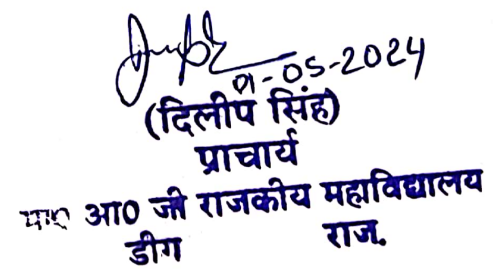 01-05-2024
(दिलीप सिंह)
प्राचार्य
आ0 जी राजकीय महाविद्यालय
डीग राज.